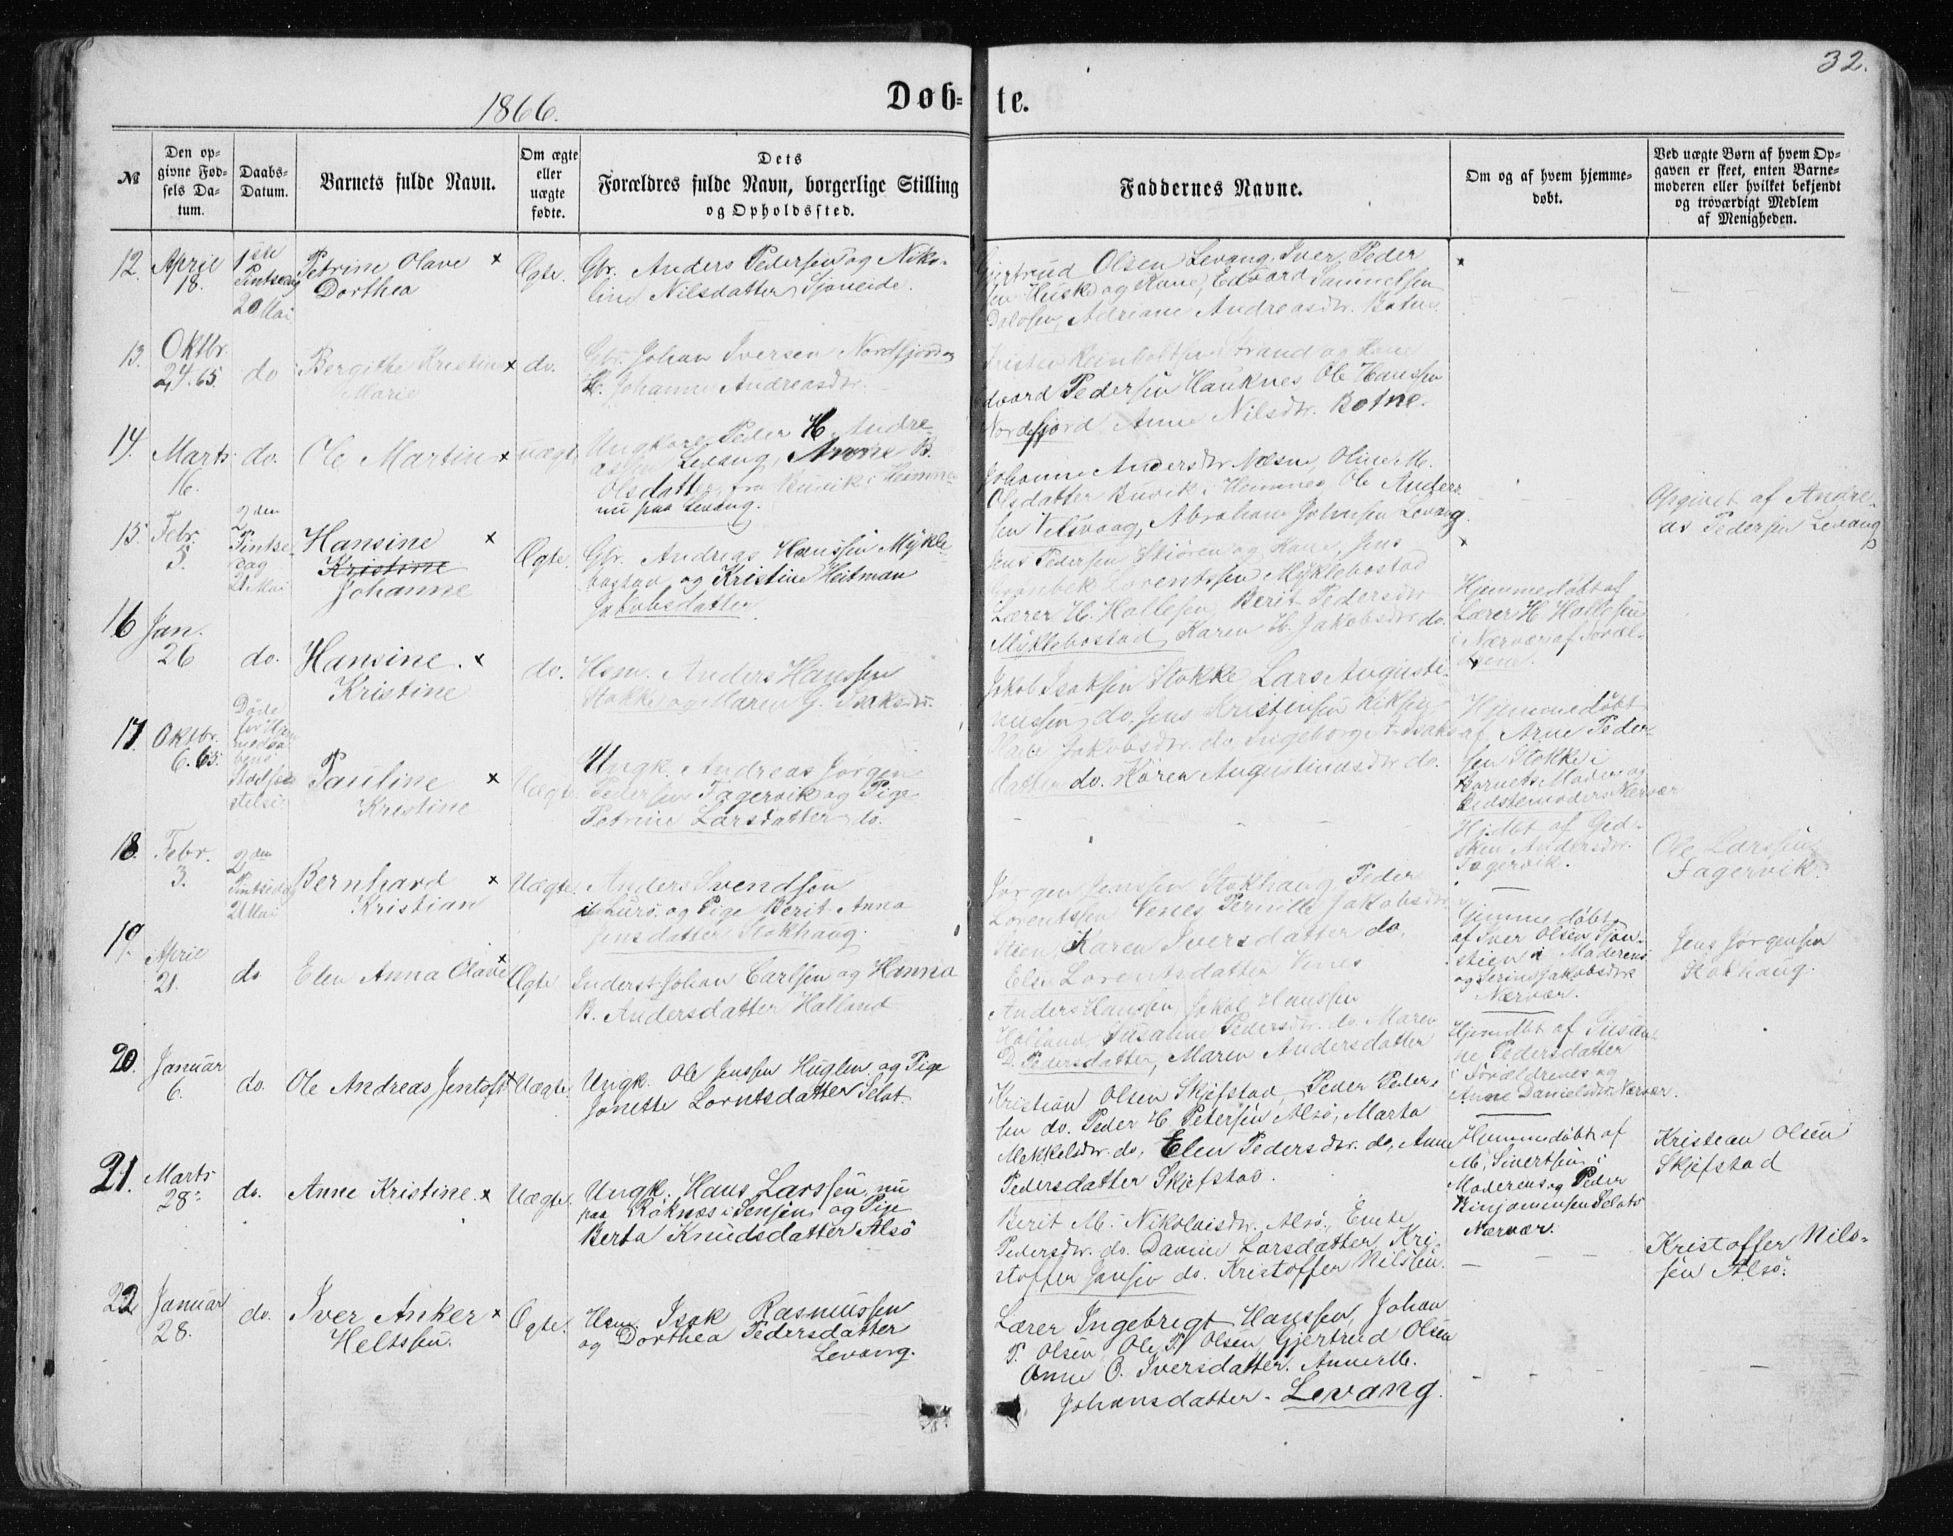 32.
1866.
Døb-
te.
№
Den op-
givne Fød-
sels Da-
tum.
Daabs-
Datum.
Barnets fulde Navn.
Om ægte
eller
uægte
fødte.
Dets
Forældres fulde Navn, borgerlige Stilling
og Opholdssted.
Faddernes Navne.
Om og af hvem hjemme-
døbt.
Ved uægte Børn af hvem Op-
gaven er skeet, enten Barne-
moderen eller hvilket bekjendt
og troværdigt Medlem
af Menigheden.
12.
April
18.
1ste
Pintsedag
20 Mai
Petrine Olave x
Dorthea
Ægte.
Gbr. Anders Pedersen og Niko-
line Nilsdatter Sjoneide.
Olsen Levang, Iver Peder
og Kone, Edvard Samuelsen
Adriane Andreasdr. Botne
13.
Oktbr.
24. 65.
do
Bergithe Kristine x
Marie
do.
Gbr. Johan Iversen Nordfjord og
H. Johanne Andreasdr.
Strand og Kone
Pedersen Hauknes Ole Hansen
Nordfjord Anne Nilsdr. Botne.
14.
Marts
16.
do.
Ole Martin x
uægte
Ungkare Peder H. Andre-
assen Levang, Anne B.
Olsdatter fra Buvik i Hemnes
nu paa Levang.
Johanne Andersdr Næsne, Oline M.
Olsdatter Buvik i Hemnes Ole Anders-
sen Vetvaag, Abraham Johnsen Levang.
Opgivet af Andre-
as Pedersen Levang
15.
Febr.
5.
2den
Pintse-
dag
21 Mai
Hansine x
Kristine
Johanne
Ægte.
Gbr. Andreas Hanssen Mykle-
bostad og Kristine Heitman
Jakobsdatter.
Jens Pedersen Skjøren og Kone, Jens
Lorentssen Myklebostad
Lærer H. Hallesen, Berit Pedersdr
Myklebostad Karen H. Jakobsdr do.
16
Jan.
26
do.
Hansine. x
Kristine
do.
Hsm. Anders Hanssen
Stokke og Maren G. Isaksdr.
Jakob Isaksen Stokke Lars Augusti-
nussen do. Jens Kristensen
Jakobsdr. do. Ingeborg A. Isaks-
datter do. Karen Augustinusdr do.
Hjemmedøbt af
Lærer H. Hallesen
i Nærvær af Foræl-
drene.
17.
Oktbr.
6. 65.
Døde
før
Pauline x
Kristine
Uægte.
Ungk. Andreas Jørgen
Pedersen Fagervik og Pige
Petrine Larsdatter do.
Hjemmedøbt
af Arne Peder-
sen Stokke i
Barnets Moder og
Bedstemoders Nærvær
18.
Febr.
3.
2den
Pintsedag
21 Mai
Bernhard x
Kristian
Uægte.
Anders Svendsen
og Pige Berit Anna
Jensdatter Stokhaug.
Jørgen Jenssen Stokhaug Peder
Lorentssen Venes Pernille Jakobsdr
Steen, Karen Iversdatter do.
Else Lorentsdatter Venes
Hjdbt af Ged-
Andersdr.
Fagervik.
Ole Larssen
Fagervik.
19.
April
21.
do
Elen Anna Olave x
Ægte.
Inderst Johan Carlsen og Hanna
B. Andersdatter Halland
Anders Hanssen Jakob Hanssen
Halland, Susanne Pedersdr. do. Maren
D. Pedersdatter, Maren Andersdatter
Hjemmedøbt
af Iver Olsen
i Moderens
og Jakobsdrs
Nærvær.
Jens Jørgensen
Stokhaug.
20.
Januar
6.
do.
Ole Andreas Jentoft x
Uægte.
Ungk. Ole Jenssen Huglen og Pige
Jonette Lorntsdatter Selat.
Kristian Olsen Skjefstad, Peder Peder-
sen do. Peder H. Petersen Alsø, Marta
Mekkelsdr. do, Elen Pedersdr. do, Anne
Pedersdatter Skjefstad.
Hjemdbt af Susan-
ne Pedersdatter
i Forældrenes og
Anne Danielsdrs Nærvær.
21.
Marts
28.
do.
Anne Kristine. x
Uægte.
Ungk. Hans Larssen, nu
paa Raknæs i Senjen og Pige
Berta Knudsdatter Alsø
Berit M. Nikolaisdr. Alsø, Emte
Pedersdr. do. Davine Larsdatter, Kri-
stoffer Jansen do. Kristoffer Nilssen.
Hjemmedøbt af
M. Sivertsen i
Moderens og Peder
Benjaminsen Selats
Nærvær.
Kristian Olsen
Skjefstad
22
Januar
28.
do.
Iver Anker x
Heltssen.
Ægte.
Hsm. Isak Rasmussen
og Dorthea Pedersdatter
Levang.
Lærer Ingebrigt Hanssen, Johan
P. Olsen, Ole P. Olsen Gjertrud Olsen
Anne O. Iversdatter. Anne M.
Johansdatter - Levang.
Kristoffer Nils-
sen Alsø.